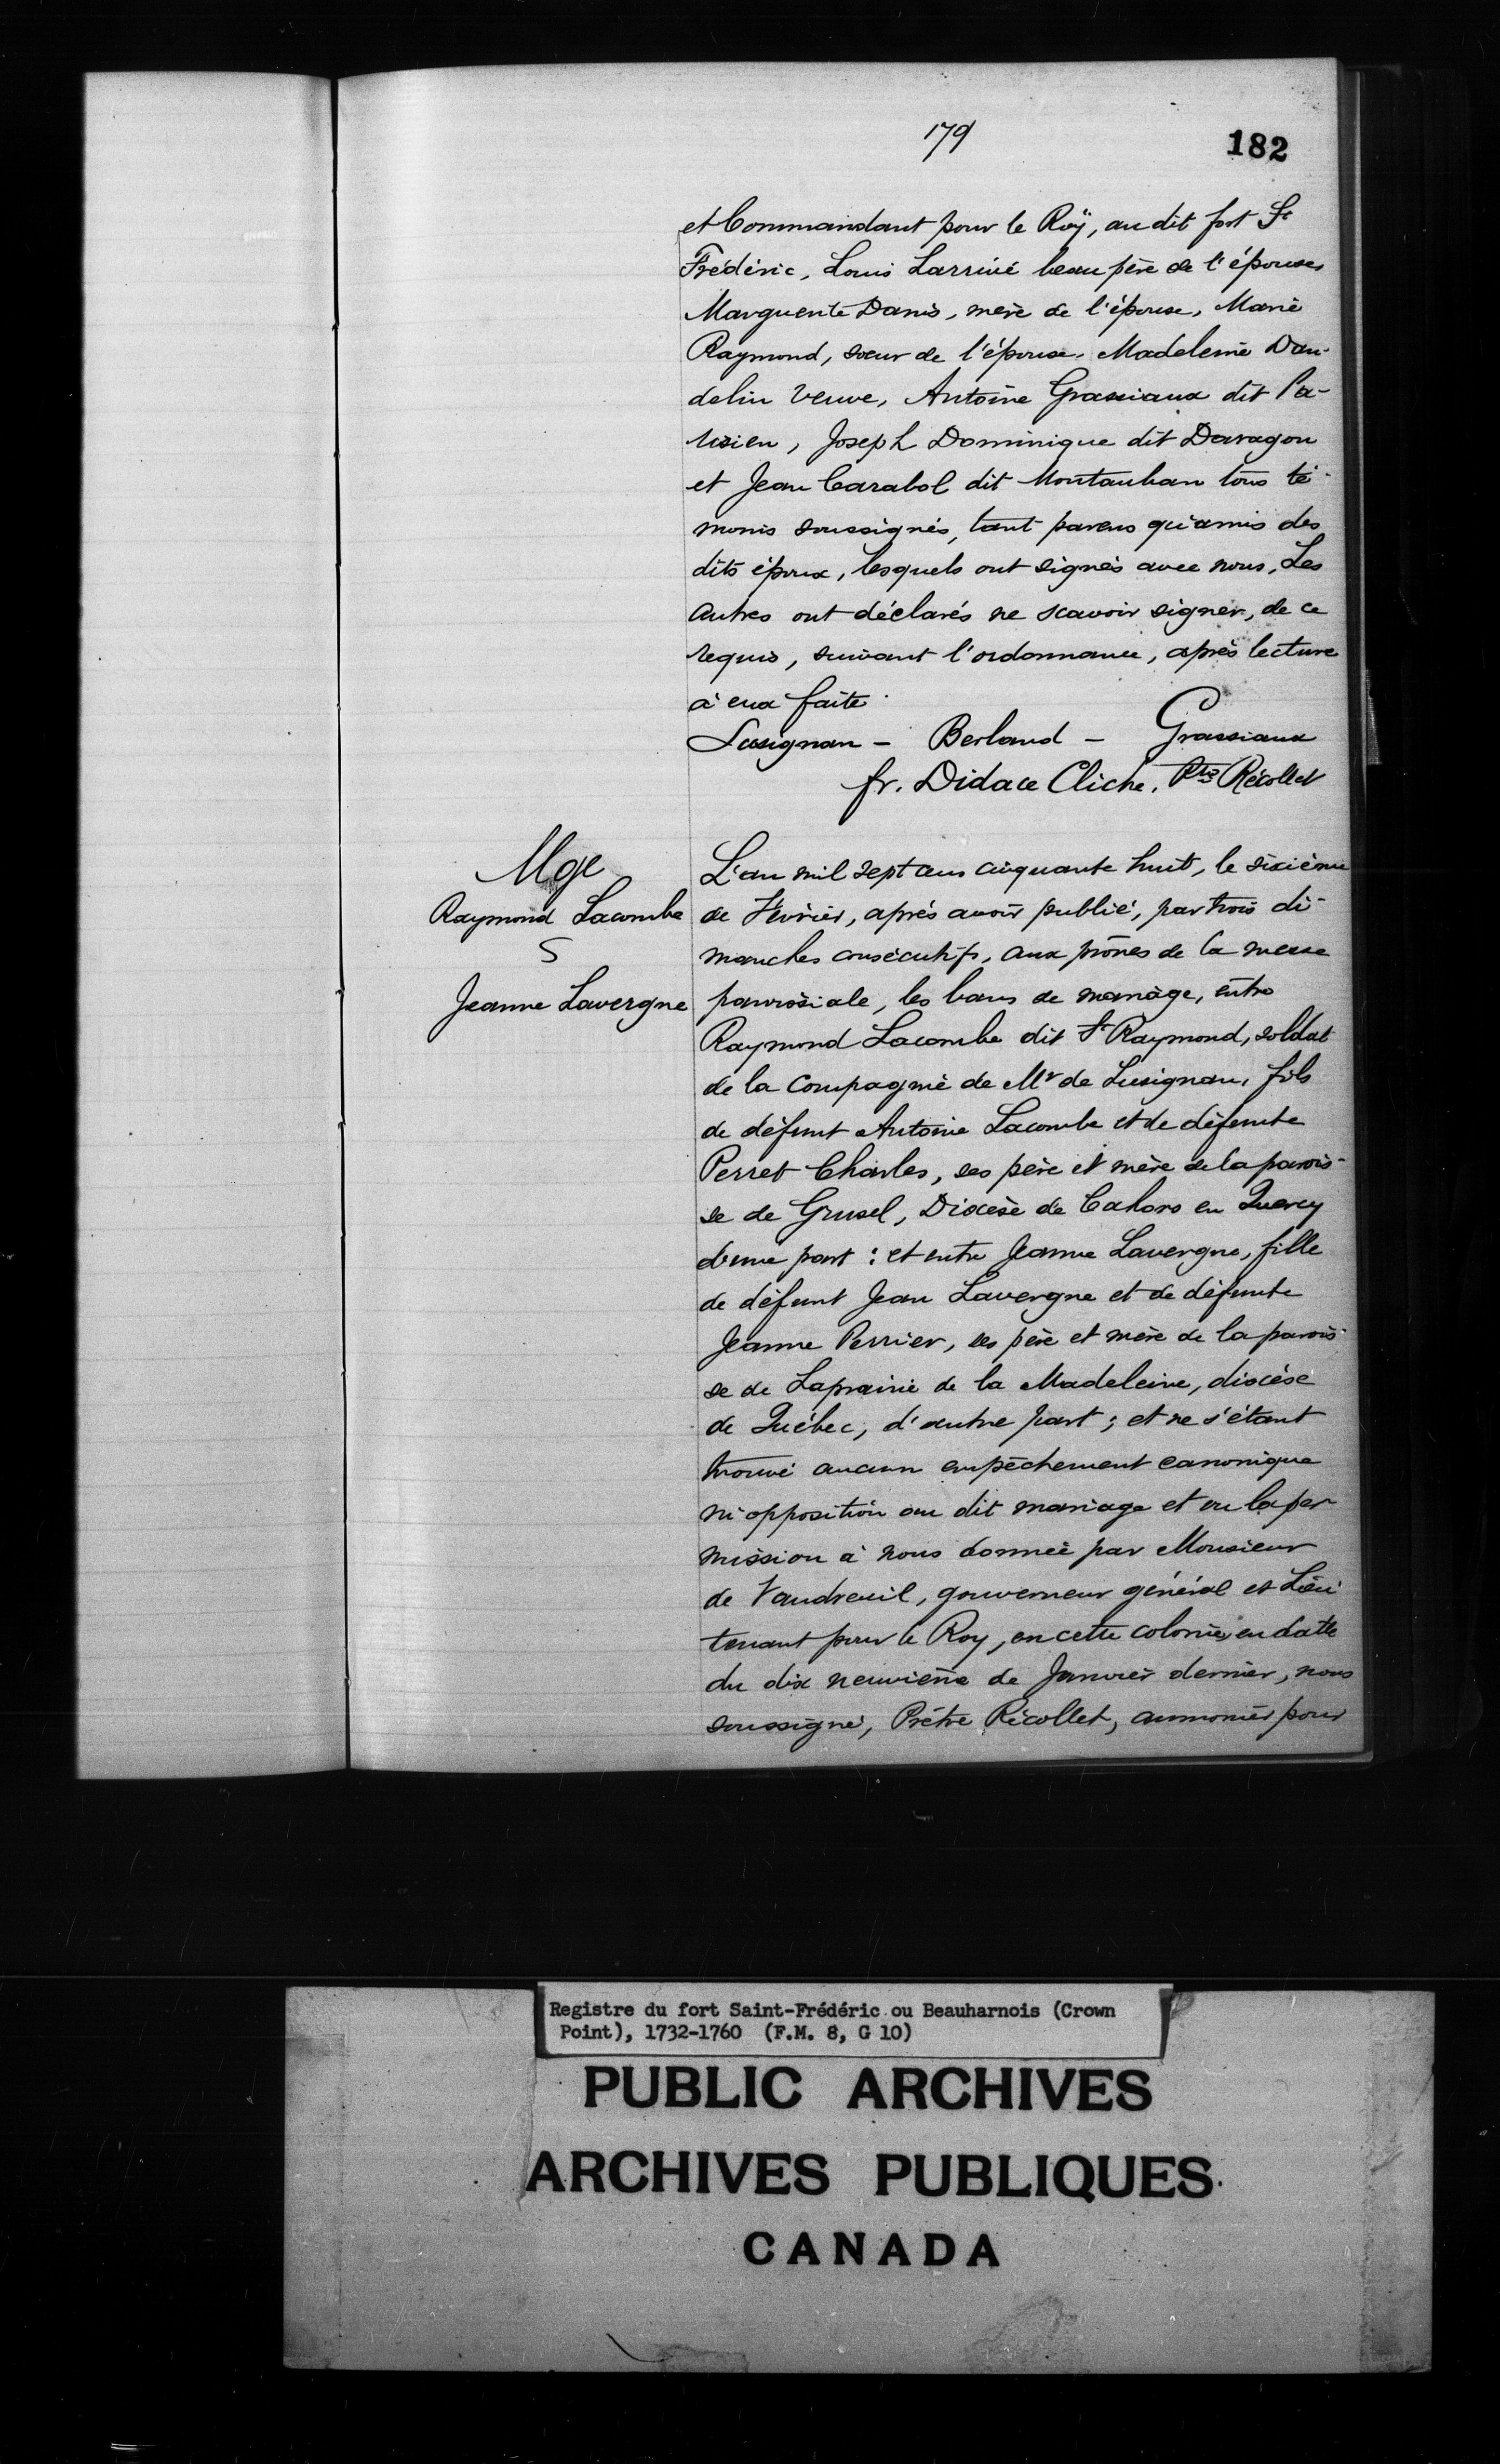 179
182
et Commandant pour le Roÿ, au dit fort St
Frédéric, Louis Larrivé beau père de l'épouse,
Marguerite Danis, mère de l'épouse, Marie
Raymond, sœur de l'épouse, Madeleine Dan-
delin veuve, Antoine Grassiaux dit Pa-
risien, Joseph Dominique dit Daragon
et Jean Carabol dit Montauban tous té-
moins soussignés, tant parens qu'amis des
dits époux, lesquels ont signés avec nous, Les
autres ont déclarés ne scavoir signer, de ce
requis, suivant l'ordonnance, après lecture
à eux faite.
Lusignan - Berland - Grassiaux
fr. Didace Cliche, Ptre Récollet
Mge
Raymond Lacombe
S
Jeanne Lavergne
L'an mil sept cens cinquante huit, le sixième
de Février, après avoir publié, par trois di-
manches consécutifs, aux prônes de la messe
paroissiale, les bans de mariage, entre
Raymond Lacombe dit St Raymond, soldat
de la compagnie de Mr de Lusignan, fils
de défunt Antoine Lacombe et de défunte
Perret Charles, ses père et mère de la parois-
se de Grusel, Diocèse de Cahors en Quercy
d'une part : et entre Jeanne Lavergne, fille
de défunt Jean Lavergne et de défunte
Jeanne Perrier, ses père et mère de la parois-
se de Laprairie de la Madeleine, diocèse
de Québec, d'autre part ; et ne s'étant
trouvé aucun empêchement canonique
ni opposition au dit mariage et vu la per
mission à nous donnée par Monsieur
de Vaudreuil, gouverneur général et Lieu
tenant pour le Roy, en cette colonie, en datte
du dix neuvième de Janvier dernier, nous
soussigné, Prêtre Récollet, aumonier pour
Registre du fort Saint-Frédéric ou Beauharnois (Crown
Point), 1732-1760 (F.M. 8, G 10)
PUBLIC ARCHIVES
ARCHIVES PUBLIQUES
CANADA